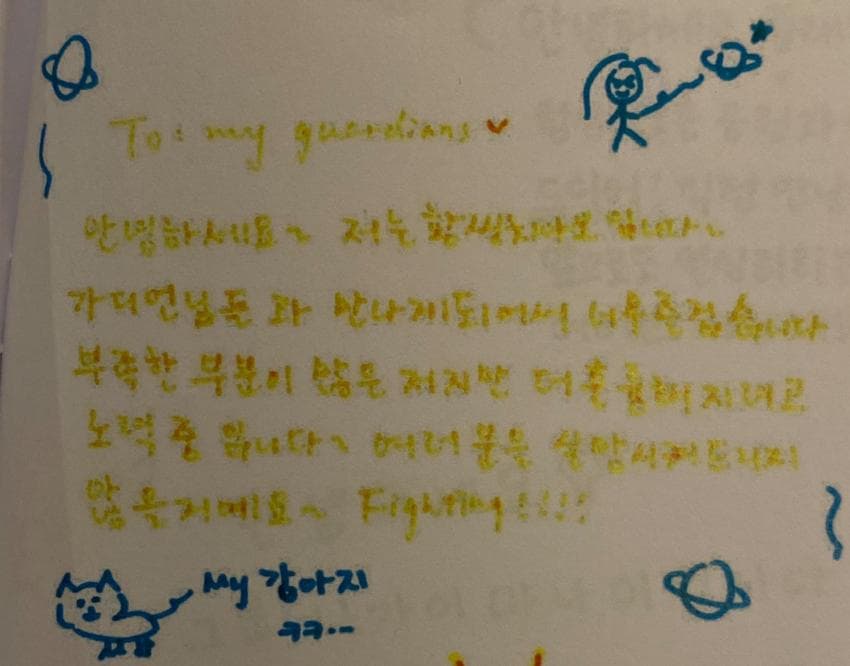 To: my guardians
안녕하세요~ 저는 입니다~
가디언님들 과 만나게되어서 너무즐겁습니다
부족한 부분이 많은 저지만 더훌륭해지려고
노력 중 입니다~ 여러분을 실망시켜드리지
않을거예요~ Fighting!!!!
My 강아지
ㅋㅋ..